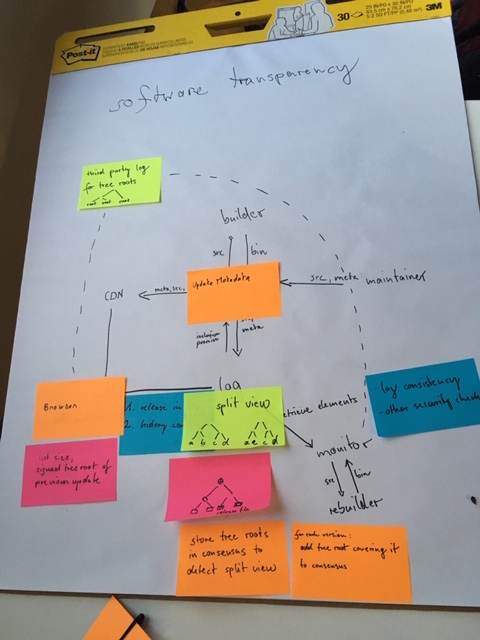 Post-it
30
3M
software transparency
third party log
for tree roots
root root root
builder
src
bin
update Metadata
src, meta
maintainer
CDN
meta, src,
inclusion
promise
meta
log
Browser
1. release in
2. history con
split view
a b c d
a e c d
retrieve elements
- log consistency
- other security check
list size,
signed tree root of
previous update
release file
monitor
src
bin
rebuilder
store tree roots
in consensus to
detect split view
for each version:
add tree root covering it
to consensus